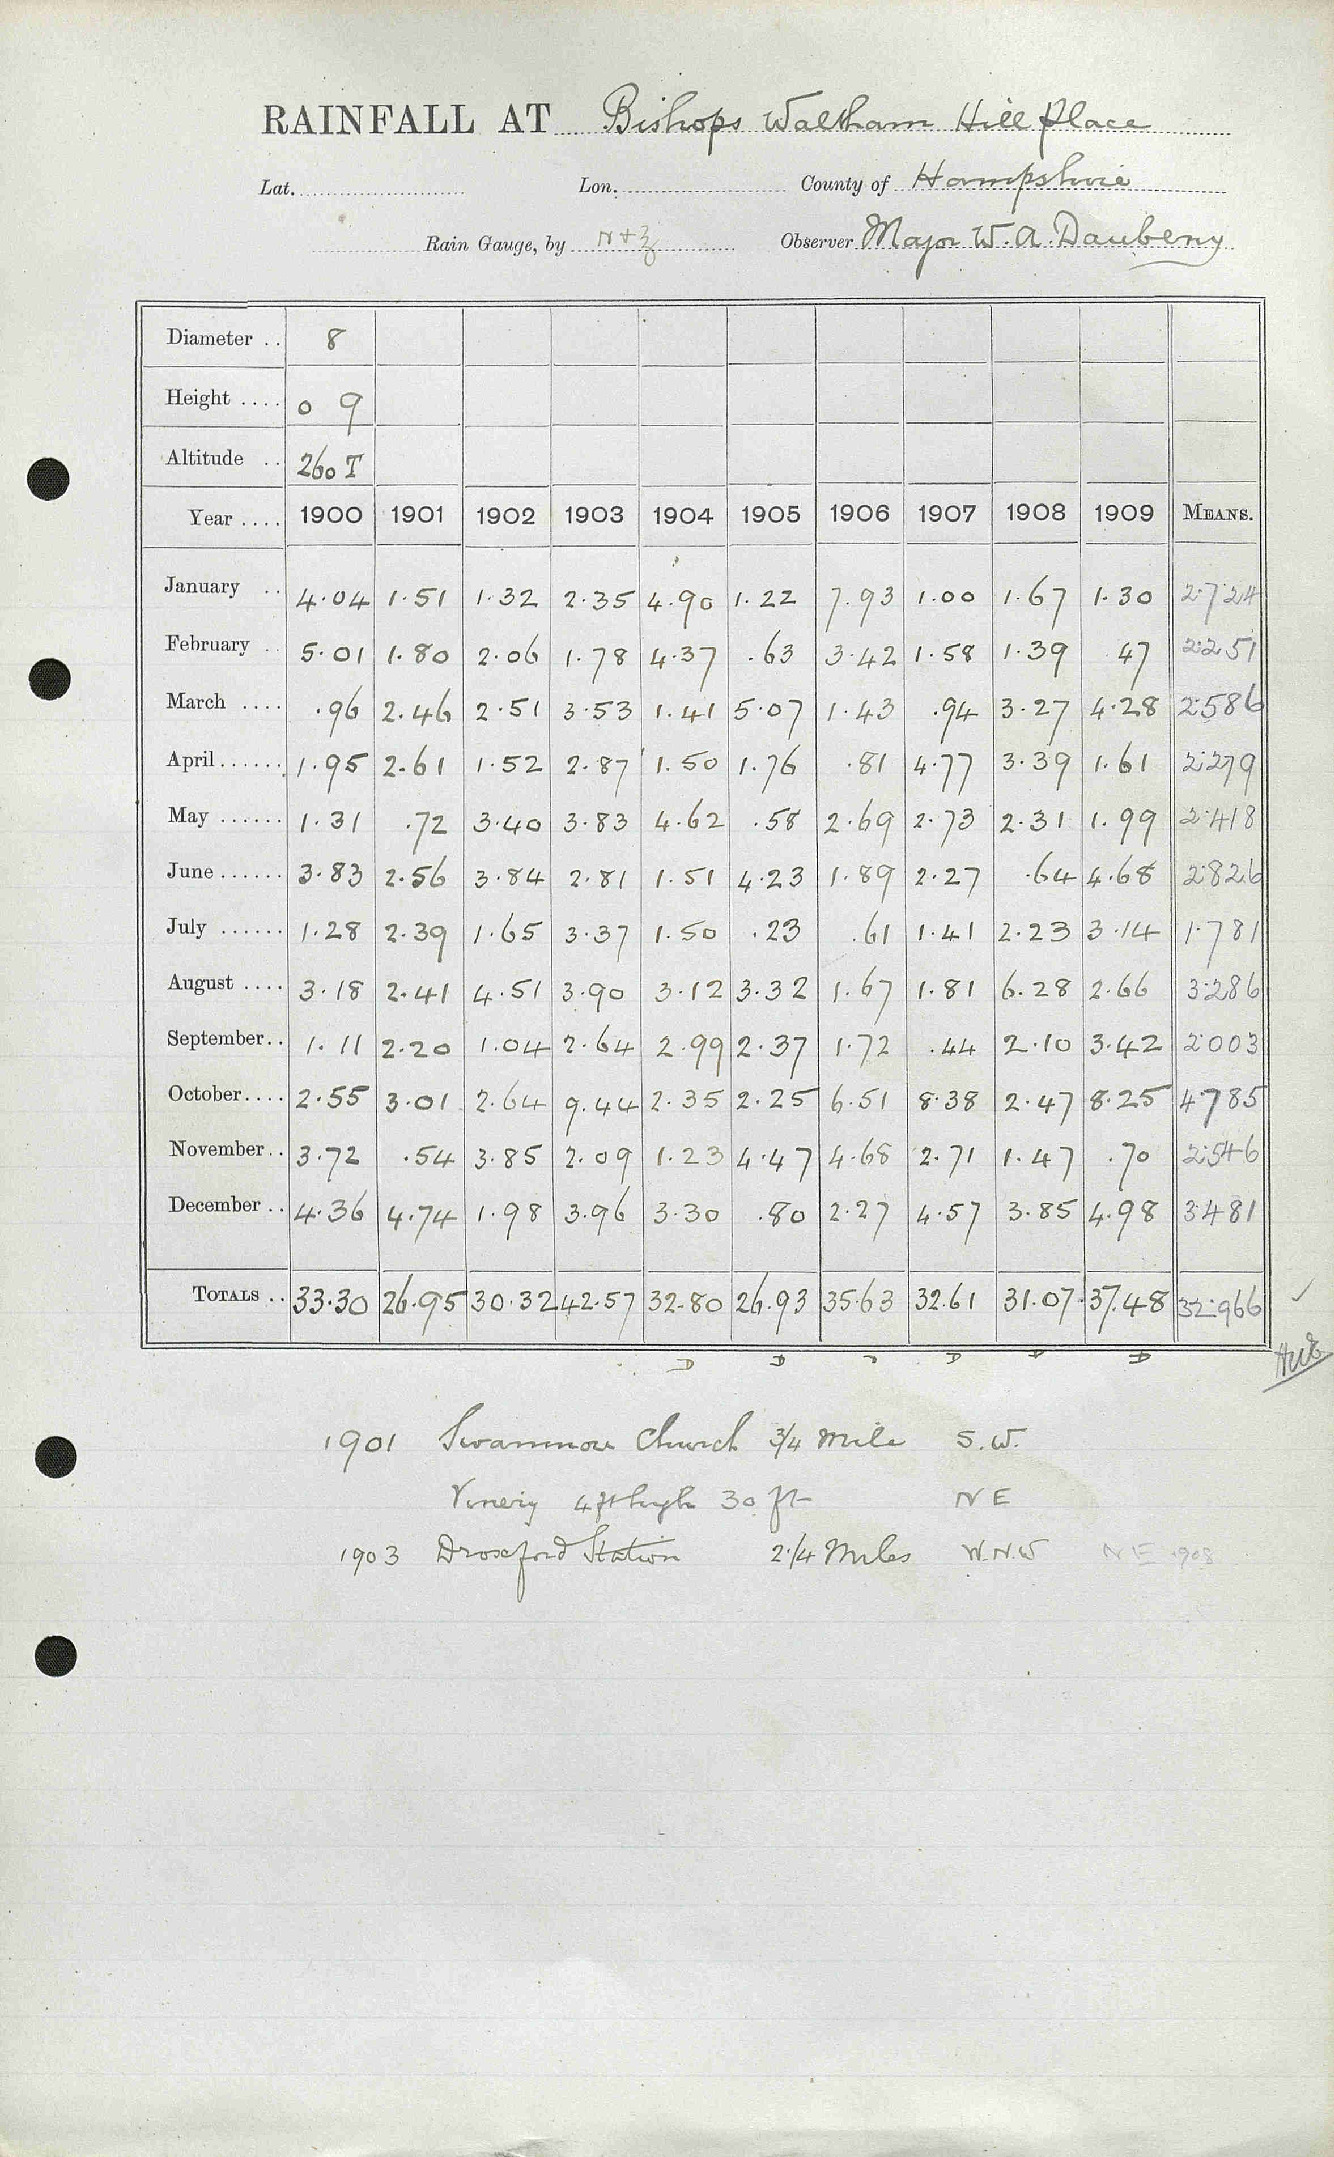 RAINFALL AT Bishops Waltham Hill Place
Lat. Lon. County of Hampshire
Rain Gauge, by N+Z Observer Major W.A. Daubeny
Diameter .. 8
Height .... 0 9
Altitude .. 260 T
Year .... 1900 1901 1902 1903 1904 1905 1906 1907 1908 1909 MEANS.
January .. 4.04 1.51 1.32 2.35 4.90 1.22 7.93 1.00 1.67 1.30 2.724
February .. 5.01 1.80 2.06 1.78 4.37 .63 3.42 1.58 1.39 47 2.251
March .... .96 2.46 2.51 3.53 1.41 5.07 1.43 .94 3.27 4.28 2.586
April...... 1.95 2.61 1.52 2.87 1.50 1.76 .81 4.77 3.39 1.61 2.279
May ...... 1.31 .72 3.40 3.83 4.62 .58 2.69 2.73 2.31 1.99 2.418
June ...... 3.83 2.56 3.84 2.81 1.51 4.23 1.89 2.27 .64 4.68 2.826
July ...... 1.28 2.39 1.65 3.37 1.50 .23 .61 1.41 2.23 3.14 1.781
August .... 3.18 2.41 4.51 3.90 3.12 3.32 1.67 1.81 6.28 2.66 3.286
September.. 1.11 2.20 1.04 2.64 2.99 2.37 1.72 .44 2.10 3.42 2.003
October.... 2.55 3.01 2.64 9.44 2.35 2.25 6.51 8.38 2.47 8.25 4.785
November.. 3.72 .54 3.85 2.09 1.23 4.47 4.68 2.71 1.47 .70 2.546
December .. 4.36 4.74 1.98 3.96 3.30 .80 2.27 4.57 3.85 4.98 3.481
TOTALS .. 33.30 26.95 30.32 42.57 32.80 26.93 35.63 32.61 31.07 37.48 32.966
D D D D D
1901 Swanmore Church 3/4 Mile S.W.
Vinery 4 ft high 30 ft NE
1903 Droxford Station 2 1/4 Miles W.N.W NE 1908